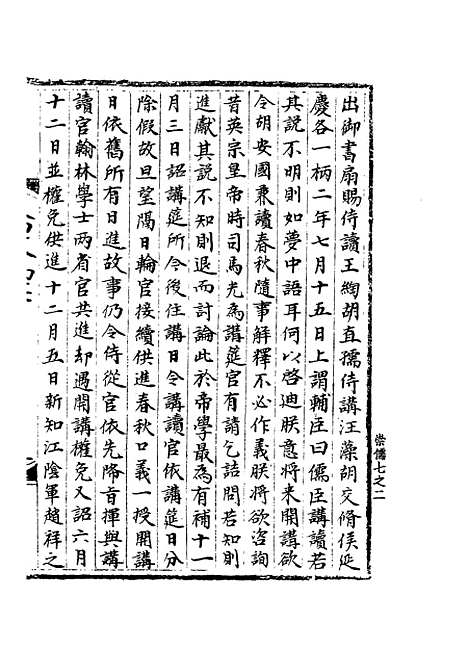 出御書扇賜侍讀王綯胡直孺侍講汪藻胡交脩侯延
慶各一柄二年七月十五日上謂輔臣曰儒臣講讀若
其說不明則如夢中語耳何以啓迪朕意將来開講欲
令胡安國兼讀春秋隨事解釋不必作義朕將欲咨詢
昔英宗皇帝時司馬光為講筵官有請乞詰問若知則
進獻其說不知則退而討論此於帝學最為有補十一
月三日詔講筵所今後住講日令講讀官依講筵日分
除假故旦望隔日輪官接續供進春秋口義一授開講
日依舊所有日進故事仍令侍從官依先降旨揮與講
讀官翰林學士兩省官共進却遇開講權免又詔六月
十二日並權免供進十二月五日新知江陰軍趙祥之
崇儒七之二